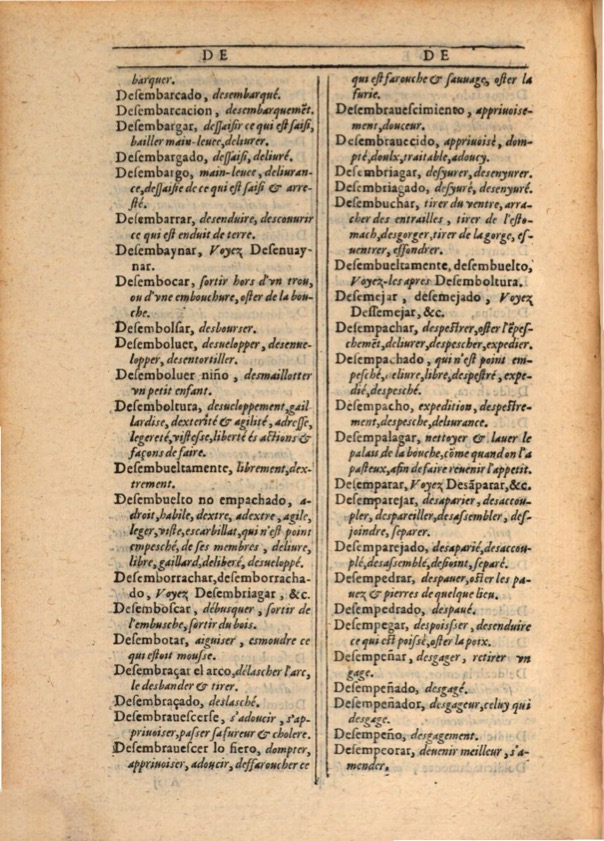 DE
barquer.
Deſembarcado, deſembarqué.
Deſembarcacion, deſembarquemẽt.
Deſembargar, deſſaiſir ce qui eſt ſaiſi,
bailler main-leuee, deliurer.
Deſembargado, deſſaiſi, deliuré.
Deſembargo, main-leuee, deliuran-
ce, deſſaiſie de ce qui eſt ſaiſi & arre-
ſté.
Deſembarrar, deſenduire, deſcouurir
ce qui eſt enduit de terre.
Deſembaynar, Voyez Deſenuay-
nar.
Deſembocar, ſortir hors d'vn trou,
ou d'vne embouchure, oſter de la bou-
che.
Deſembolſar, desbourſer.
Deſemboluer, desuelopper, deſenue-
lopper, deſentortiller.
Deſemboluer niño, deſmaillotter
vn petit enfant.
Deſemboltura, desueloppement, gail-
lardiſe, dexterité & agilité, adreſſe,
legereté, viſteſſe, liberté és actions &
façons de faire.
Deſembueltamente, librement, dex-
trement.
Deſembuelto no empachado, a-
droit, habile, dextre, adextre, agile,
leger, viſte, eſcarbillat, qui n'eſt point
empeſché, de ſes membres, deliure,
libre, gaillard, deliberé, desueloppé.
Deſemborrachar, deſemborracha-
do, Voyez Deſembriagar, &c.
Deſemboſcar, débuſquer, ſortir de
l'embuſche, ſortir du bois.
Deſembotar, aiguiſer, eſmoudre ce
qui eſtoit mouſſe.
Deſembraçar el arco, délaſcher l'arc,
le desbander & tirer.
Deſembraçado, deslaſché.
Deſembrauescerſe, s'adoucir, s'ap-
priuoiſer, paſſer ſa fureur & cholere.
Deſembrauescer lo fiero, dompter,
appriuoiſer, adoucir, deſſaroucher ce
DE
qui eſt farouche & ſauuage, oſter la
furie.
Deſembrauescimiento, appriuoiſe-
ment, douceur.
Deſembrauecido, appriuoiſé, dom-
pté, doulx, traitable, adoucy.
Deſembriagar, deſyurer, deſenyurer.
Deſembriagado, deſyuré, deſenyuré.
Deſembuchar, tirer du ventre, arra-
cher des entrailles, tirer de l'eſto-
mach, deſgorger, tirer de la gorge, eſ-
uentrer, effondrer.
Deſembueltamente, deſembuelto,
Voyez-les apres Deſemboltura.
Deſemejar, deſemejado, Voyez
Deſſemejar, &c.
Deſempachar, deſpeſtrer, oſter l'ẽpeſ-
chemẽt, deliurer, deſpeſcher, expedier.
Deſempachado, qui n'eſt point em-
peſché, deliure, libre, deſpeſtré, expe-
dié, deſpeſché.
Deſempacho, expedition, deſpeſtre-
ment, deſpeſche, deliurance.
Deſempalagar, nettoyer & lauer le
palais de la bouche, cõme quand on l'a
paſteux, afin de faire reuenir l'appetit.
Deſemparar, Voyez Deſãparar, &c.
Deſemparejar, deſaparier, deſaccou-
pler, deſpareiller, deſaſſembler, deſ-
joindre, ſeparer.
Deſemparejado, deſaparié, deſaccou-
plé, deſaſſemblé, deſioint, ſeparé.
Deſempedrar, deſpauer, oſter les pa-
uez & pierres de quelque lieu.
Deſempedrado, deſpaué.
Deſempegar, deſpoiſſer, deſenduire
ce qui eſt poiſſé, oſter la poix.
Deſempeñar, deſgager, retirer vn
gage.
Deſempeñado, deſgagé.
Deſempeñador, deſgageur, celuy qui
deſgage.
Deſempeño, deſgagement.
Deſempeorar, deuenir meilleur, s'a-
mender.